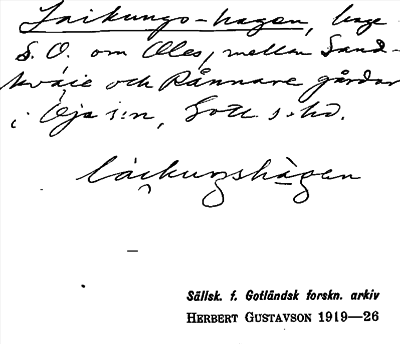 Laikungs-hagen, hage
S. O. om Oles, mellan Sand-
kväie och Rånnare gårdar
i Öja s:n, Gotl. s. hd.
láikuŋshàgen
Sällsk. f. Gotländsk forskn. arkiv
HERBERT GUSTAVSON 1919—26